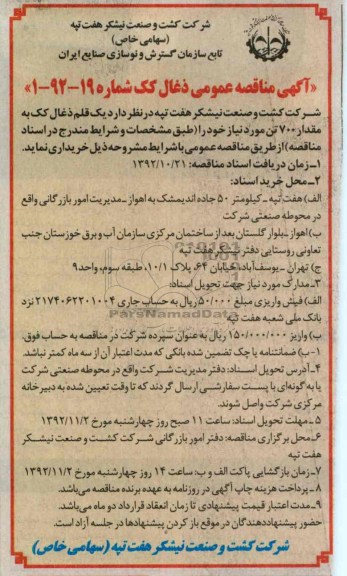 شرکت کشت و صنعت نیشکر هفت تپه
(سهامی خاص)
تابع سازمان گسترش و نوسازی صنایع ایران
«آگهی مناقصه عمومی ذغال کک شماره ۱۹-۹۲-۱»
شرکت کشت و صنعت نیشکر هفت تپه در نظر دارد یک قلم ذغال کک به
مقدار ۷۰۰ تن مورد نیاز خود را (طبق مشخصات و شرایط مندرج در اسناد
مناقصه) از طریق مناقصه عمومی با شرایط مشروحه ذیل خریداری نماید.
۱ـ زمان دریافت اسناد مناقصه: ۱۳۹۲/۱۰/۲۱
۲ـ محل خرید اسناد:
الف) هفت تپه ـ کیلومتر ۵۰ جاده اندیمشک به اهواز ـ مدیریت امور بازرگانی واقع
در محوطه صنعتی شرکت
ب) اهواز ـ بلوار گلستان بعد از ساختمان مرکزی سازمان آب و برق خوزستان جنب
تعاونی روستایی دفتر نیشکر هفت تپه
ج) تهران ـ یوسف‌آباد، خیابان ۶۴، پلاک ۱۰/۱، طبقه سوم، واحد ۹
۳ـ مدارک مورد نیاز جهت تحویل اسناد:
الف) فیش واریزی مبلغ ۵۰/۰۰۰ ریال به حساب جاری ۲۱۷۴۰۶۲۲۰۱۰۰۴ نزد
بانک ملی شعبه هفت تپه
ب) واریز ۱۵۰/۰۰۰/۰۰۰ ریال به عنوان سپرده شرکت در مناقصه به حساب فوق.
۱-ب) ضمانتنامه یا چک تضمین شده بانکی که مدت اعتبار آن از سه ماه کمتر نباشد.
۴ـ آدرس تحویل اسناد: دفتر مدیریت شرکت واقع در محوطه صنعتی شرکت
یا به گونه‌ای با پست سفارشی ارسال گردند که تا وقت تعیین شده به دبیرخانه
مرکزی شرکت واصل شوند.
۵ـ مهلت تحویل اسناد: ساعت ۱۱ صبح روز چهارشنبه مورخ ۱۳۹۲/۱۱/۲
۶ـ محل برگزاری مناقصه: دفتر امور بازرگانی شرکت کشت و صنعت نیشکر
هفت تپه
۷ـ زمان بازگشایی پاکت الف و ب: ساعت ۱۴ روز چهارشنبه مورخ ۱۳۹۲/۱۱/۲
۸ـ پرداخت هزینه چاپ آگهی در روزنامه به عهده برنده مناقصه می‌باشد.
۹ـ مدت اعتبار قیمت پیشنهادی تا زمان انعقاد قرارداد دو ماه می‌باشد.
حضور پیشنهاددهندگان در موقع باز کردن پیشنهادها در جلسه آزاد است.
شرکت کشت و صنعت نیشکر هفت تپه (سهامی خاص)